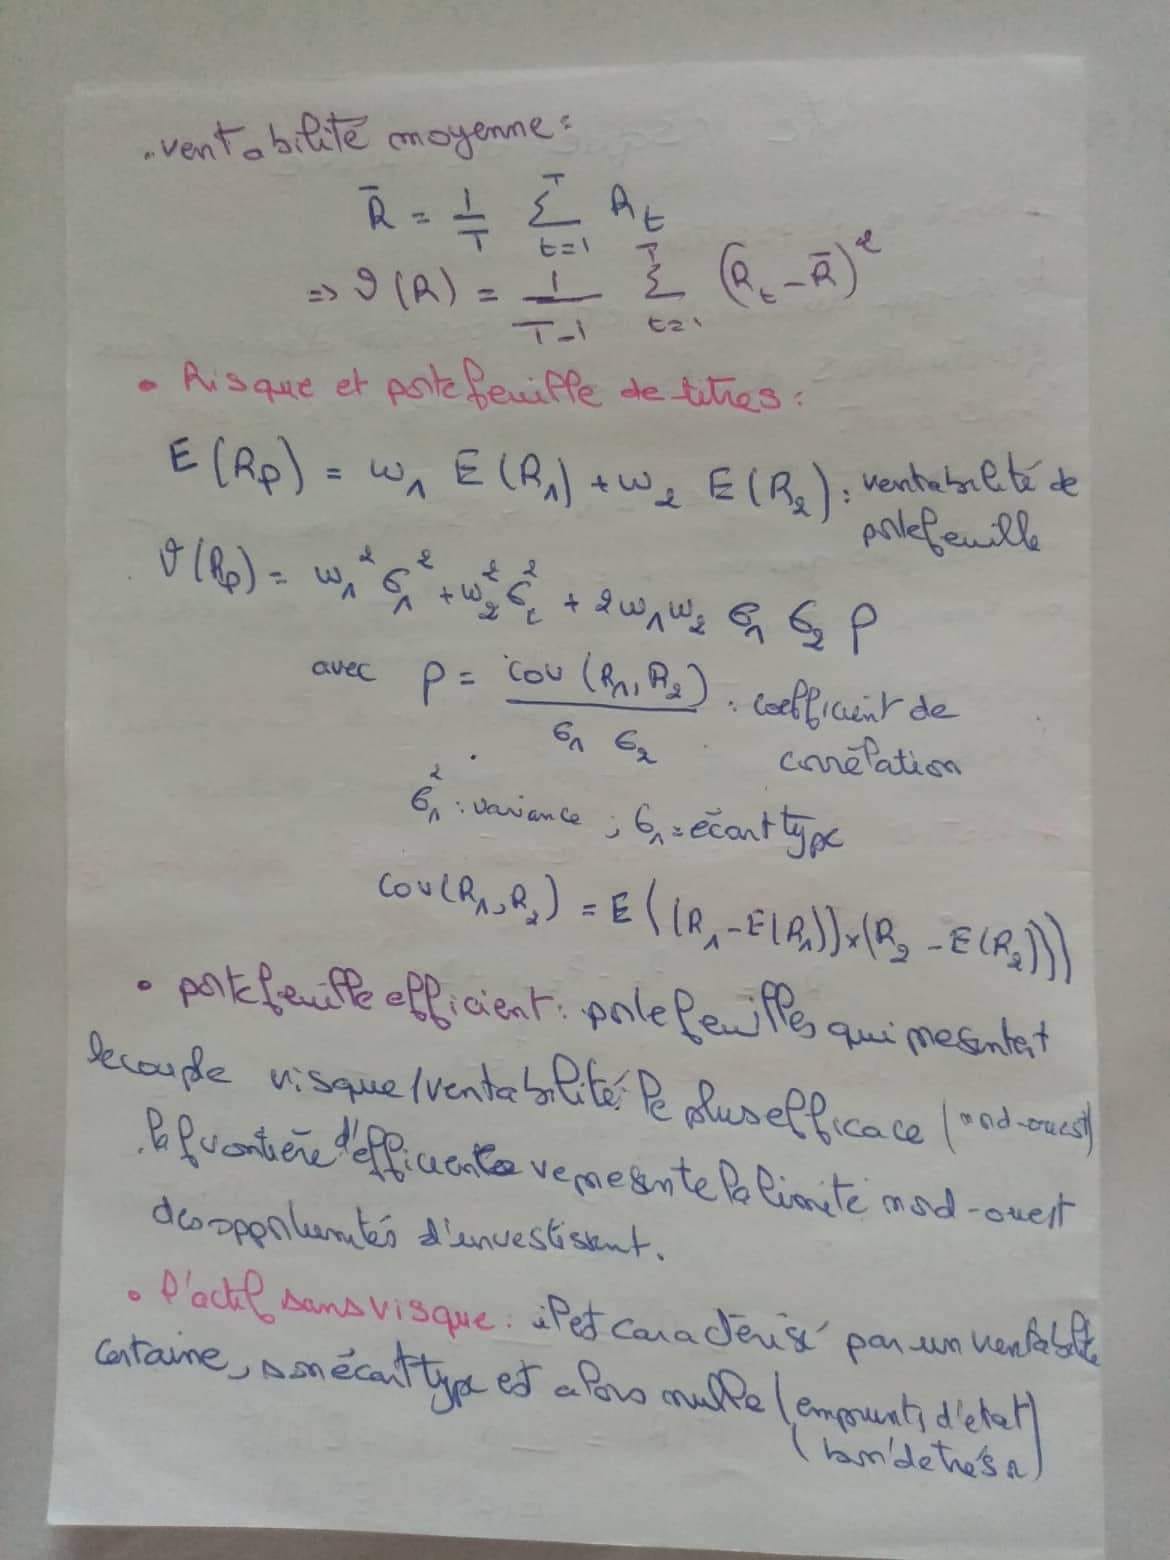 . rentabilité moyenne :
R̄ = 1/T Σ_{t=1}^{T} R_t
=> V(R) = 1/(T-1) Σ_{t=1}^{T} (R_t - R̄)²
• Risque et portefeuille de titres :
E(Rp) = w₁ E(R₁) + w₂ E(R₂) : rentabilité de
portefeuille
V(Rp) = w₁² σ₁² + w₂² σ₂² + 2w₁w₂ σ₁ σ₂ ρ
avec ρ = cov(R₁, R₂) / σ₁ σ₂ : coefficient de
corrélation
σ₁² : variance ; σ₁ = écart type
cov(R₁, R₂) = E((R₁ - E(R₁)) × (R₂ - E(R₂)))
• portefeuille efficient : portefeuilles qui présentent
le couple risque/rentabilité le plus efficace (nord-ouest)
. la frontière d'efficience représente la limite nord-ouest
des opportunités d'investissent.
• l'actif sans risque : il est caractérisé par un rentabilité
certaine, son écart type est alors nulle (emprunts d'état)
(bon de trésor)